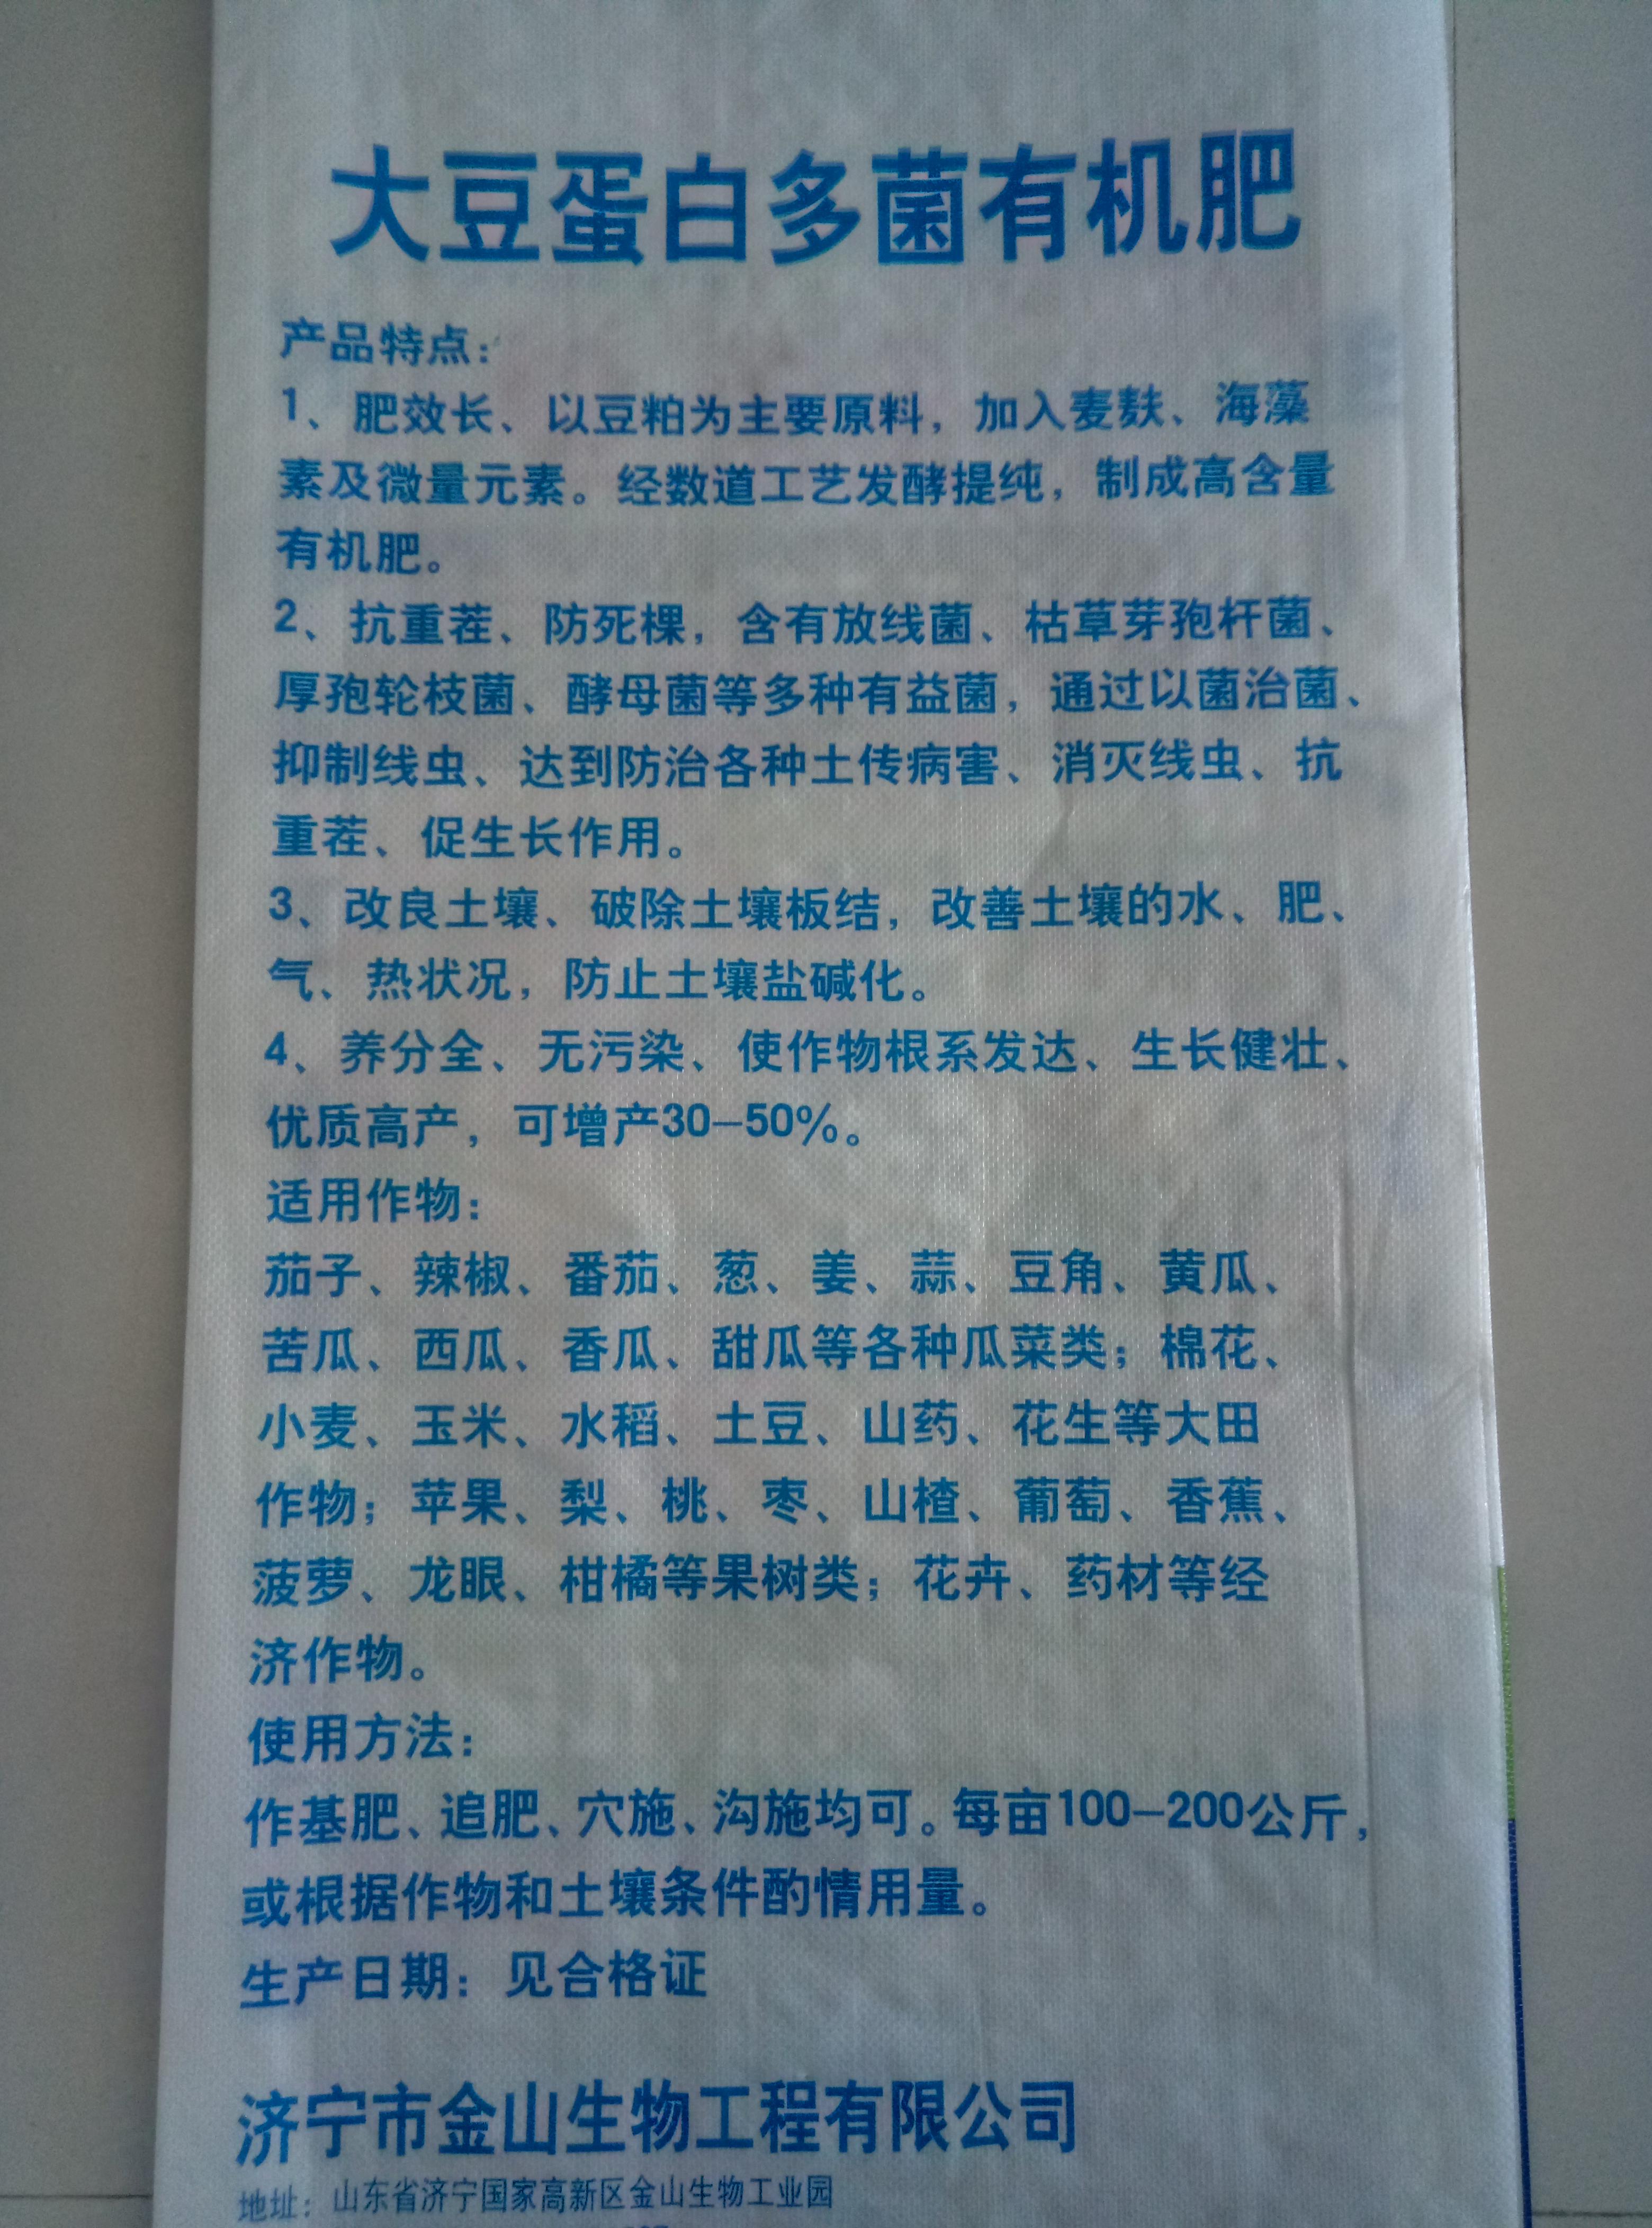 大豆蛋白多菌有机肥
产品特点：
1、肥效长、以豆粕为主要原料，加入麦麸、海藻
素及微量元素。经数道工艺发酵提纯，制成高含量
有机肥。
2、抗重茬、防死棵，含有放线菌、枯草芽孢杆菌、
厚孢轮枝菌、酵母菌等多种有益菌，通过以菌治菌、
抑制线虫、达到防治各种土传病害、消灭线虫、抗
重茬、促生长作用。
3、改良土壤、破除土壤板结，改善土壤的水、肥、
气、热状况，防止土壤盐碱化。
4、养分全、无污染、使作物根系发达、生长健壮、
优质高产，可增产30—50%。
适用作物：
茄子、辣椒、番茄、葱、姜、蒜、豆角、黄瓜、
苦瓜、西瓜、香瓜、甜瓜等各种瓜菜类；棉花、
小麦、玉米、水稻、土豆、山药、花生等大田
作物；苹果、梨、桃、枣、山楂、葡萄、香蕉、
菠萝、龙眼、柑橘等果树类；花卉、药材等经
济作物。
使用方法：
作基肥、追肥、穴施、沟施均可。每亩100—200公斤，
或根据作物和土壤条件酌情用量。
生产日期：见合格证
济宁市金山生物工程有限公司
地址：山东省济宁国家高新区金山生物工业园